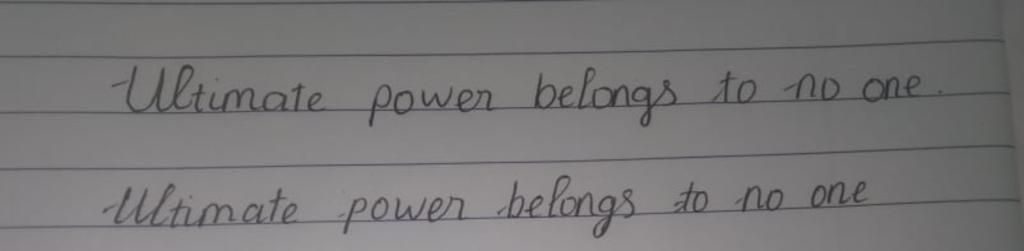 Ultimate power belongs to no one.
Ultimate power belongs to no one